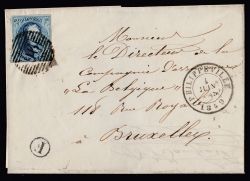 Monsieur
le Directeur de la
Compagnie
"La Belgique"
118 rue Royale
Bruxelles.
PHILIPPEVILLE